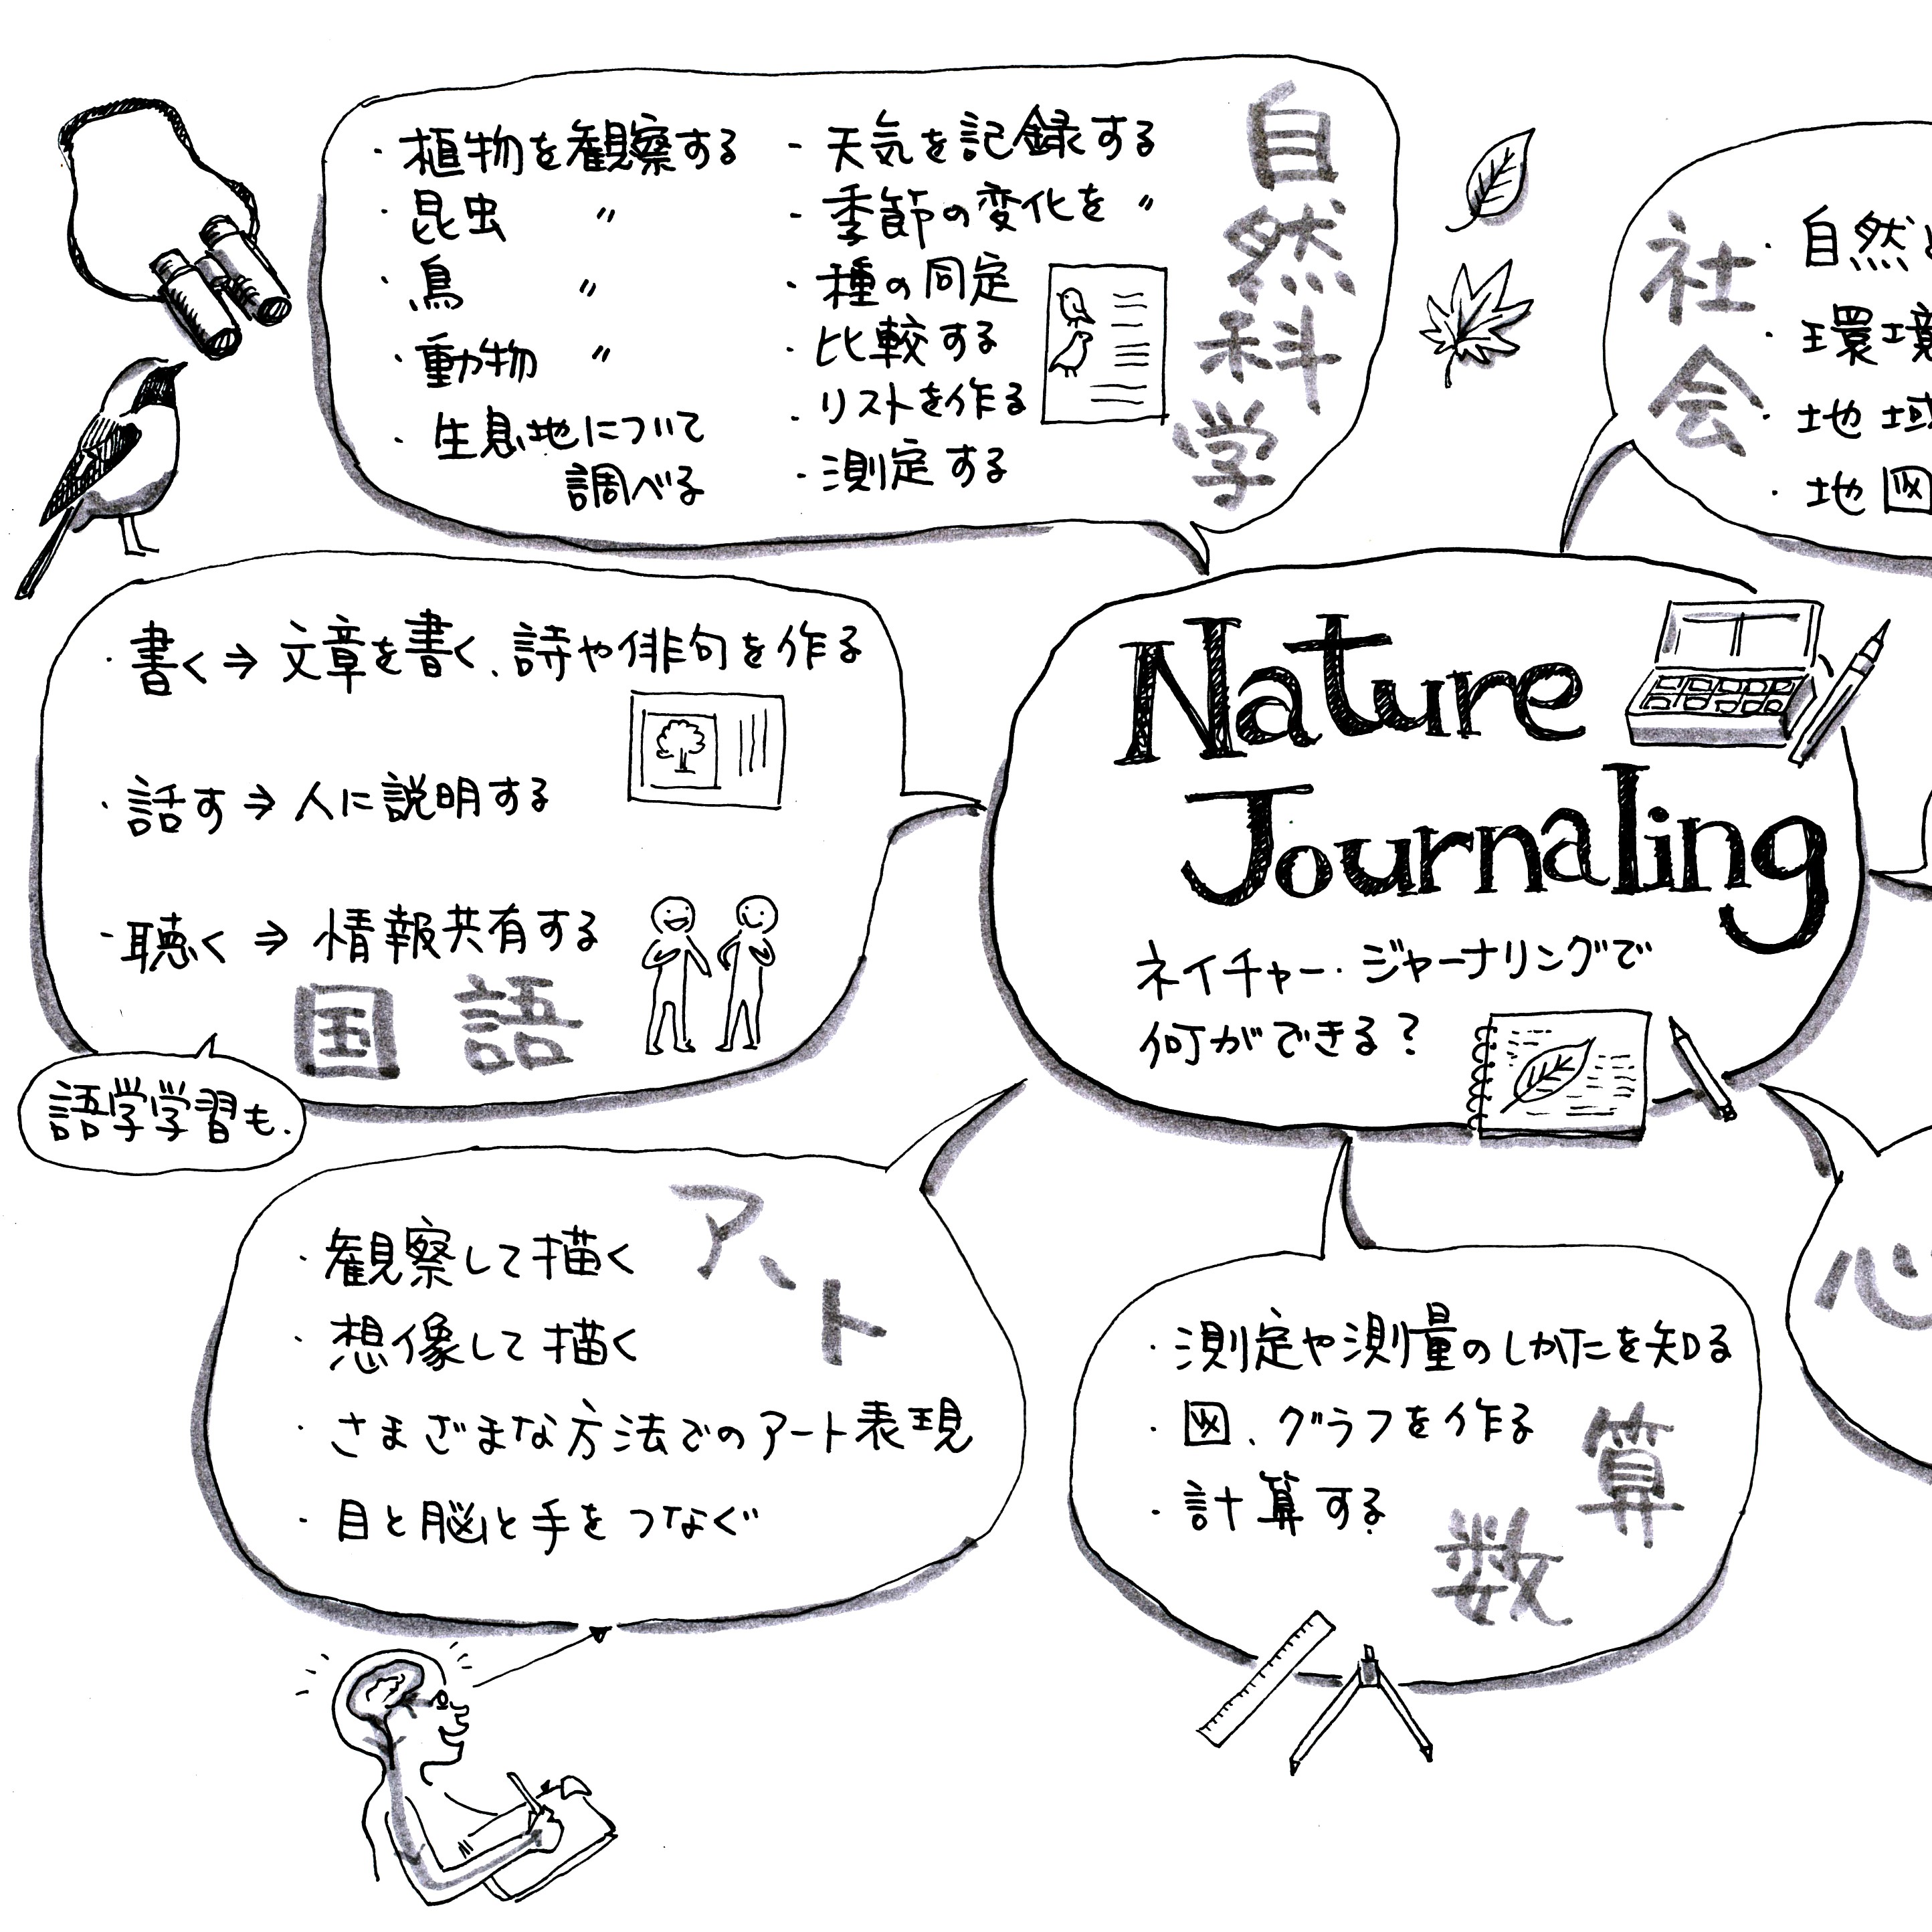 自然科学
・植物を観察する
・昆虫 〃
・鳥 〃
・動物 〃
・生息地について
調べる
・天気を記録する
・季節の変化を 〃
・種の同定
・比較する
・リストを作る
・測定する
社会
・自然
・環境
・地域
・地図
Nature
Journaling
ネイチャー・ジャーナリングで
何ができる?
・書く⇒文章を書く、詩や俳句を作る
・話す⇒人に説明する
・聴く⇒情報共有する
国語
語学学習も.
アート
・観察して描く
・想像して描く
・さまざまな方法でのアート表現
・目と脳と手をつなぐ
・測定や測量のしかたを知る
・図、グラフを作る
・計算する
算数
心